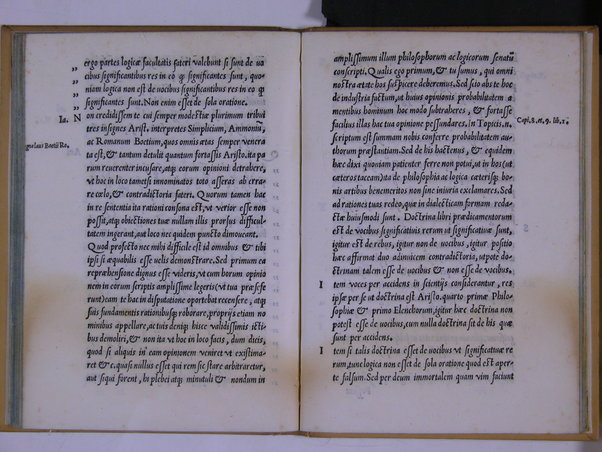 ergo partes logicæ facultatis fateri valebunt si sunt de uo
cibus significantibus res in eo q significantes sunt, quo-
niam logica non est de uocibus significantibus res in eo q
significantes sunt. Non enim esset de sola oratione.
Ia. Non credidissem te cui semper modestiæ plurimum tribui
tres insignes Arist. interpretes Simplicium, Ammoniũ,
ac Romanum Boetium, quos omnis ætas semper venera
ta est, & tantum detulit quantum fortassis Aristo. ita pa
rum reuerenter incusare, atq; eorum opinioni detrahere,
vt hoc in loco tametsi innominatos toto asseras ab erra-
re cælo, & contradictoria fateri. Quorum tamen hac
in re sententia ita rationi consona est, vt verior esse non
possit, atq; obiectiones tuæ nullam illis prorsus difficul-
tatem ingerant, aut loco nec quidem puncto dimoueant.
Quod profecto nec mihi difficile est id omnibus & tibi
ipsi si æquabilis esse uelis demonstrare. Sed primum ea
repræhensione dignus esse videris, vt cum horum opinio
nem in eorum scriptis amplissime legeris (vt tua præ se fe
runt) eam te hac in disputatione oportebat recensere, atq;
suis fundamentis rationibusq; roborare, proprijs etiam no
minibus appellare, ac tuis deniq; hisce validissimis icti-
bus demoliri, & non ita vt hoc in loco facis, dum dicis,
quod si aliquis in eam opinionem veniret vt existima-
ret &c. quasi nullus esset qui rem sic stare arbitraretur,
aut sequi forent, hi plebei atq; minutuli & nondum in
amplissimum illum philosophorum ac logicorum senatũ
conscripti. Qualis ego primum, & tu sumus, qui omni
nostra ætate hos suspicere deberemus. Sed scio abs te hoc
de industria factum, ut huius opinionis probabilitatem a
mentibus hominum hoc modo subtraheres, & fortasse
facilius illas hac tua opinione pessundares. in Topicis. n.
scriptum est summam nobis conferre probabilitatem au-
thorum præstantiam. Sed de his hactenus, & equidem
hæc dixi quoniam patienter ferre non potui, ut in hos (ut
cæteros taceam) ita de philosophia ac logica cæterisq; bo-
nis artibus benemeritos non sine iniuria exclamares. Sed
ad rationes tuas redeo, quæ in dialecticam formam reda-
ctæ huiusmodi sunt. Doctrina libri prædicamentorum
est de vocibus significatiuis rerum ut significatiuæ sunt,
igitur est de rebus, igitur non de uocibus, igitur positio
hæc affirmat duo adinuicem contradictoria, utpote do-
ctrinam talem esse de uocibus & non esse de vocibus.
Item voces per accidens in scientijs considerantur, res
ipsæ per se ut doctrina est Aristo. quarto primæ Philo-
sophiæ & primo Elenchorum, igitur hæc doctrina non
potest esse de uocibus, cum nulla doctrina sit de his quæ
sunt per accidens.
Item si talis doctrina esset de uocibus vt significatiuæ re
rum, tunc logica non esset de sola oratione quod est aper-
te falsum. Sed per deum immortalem quam vim faciunt
Capi. 8. et. 9. lib. 1.